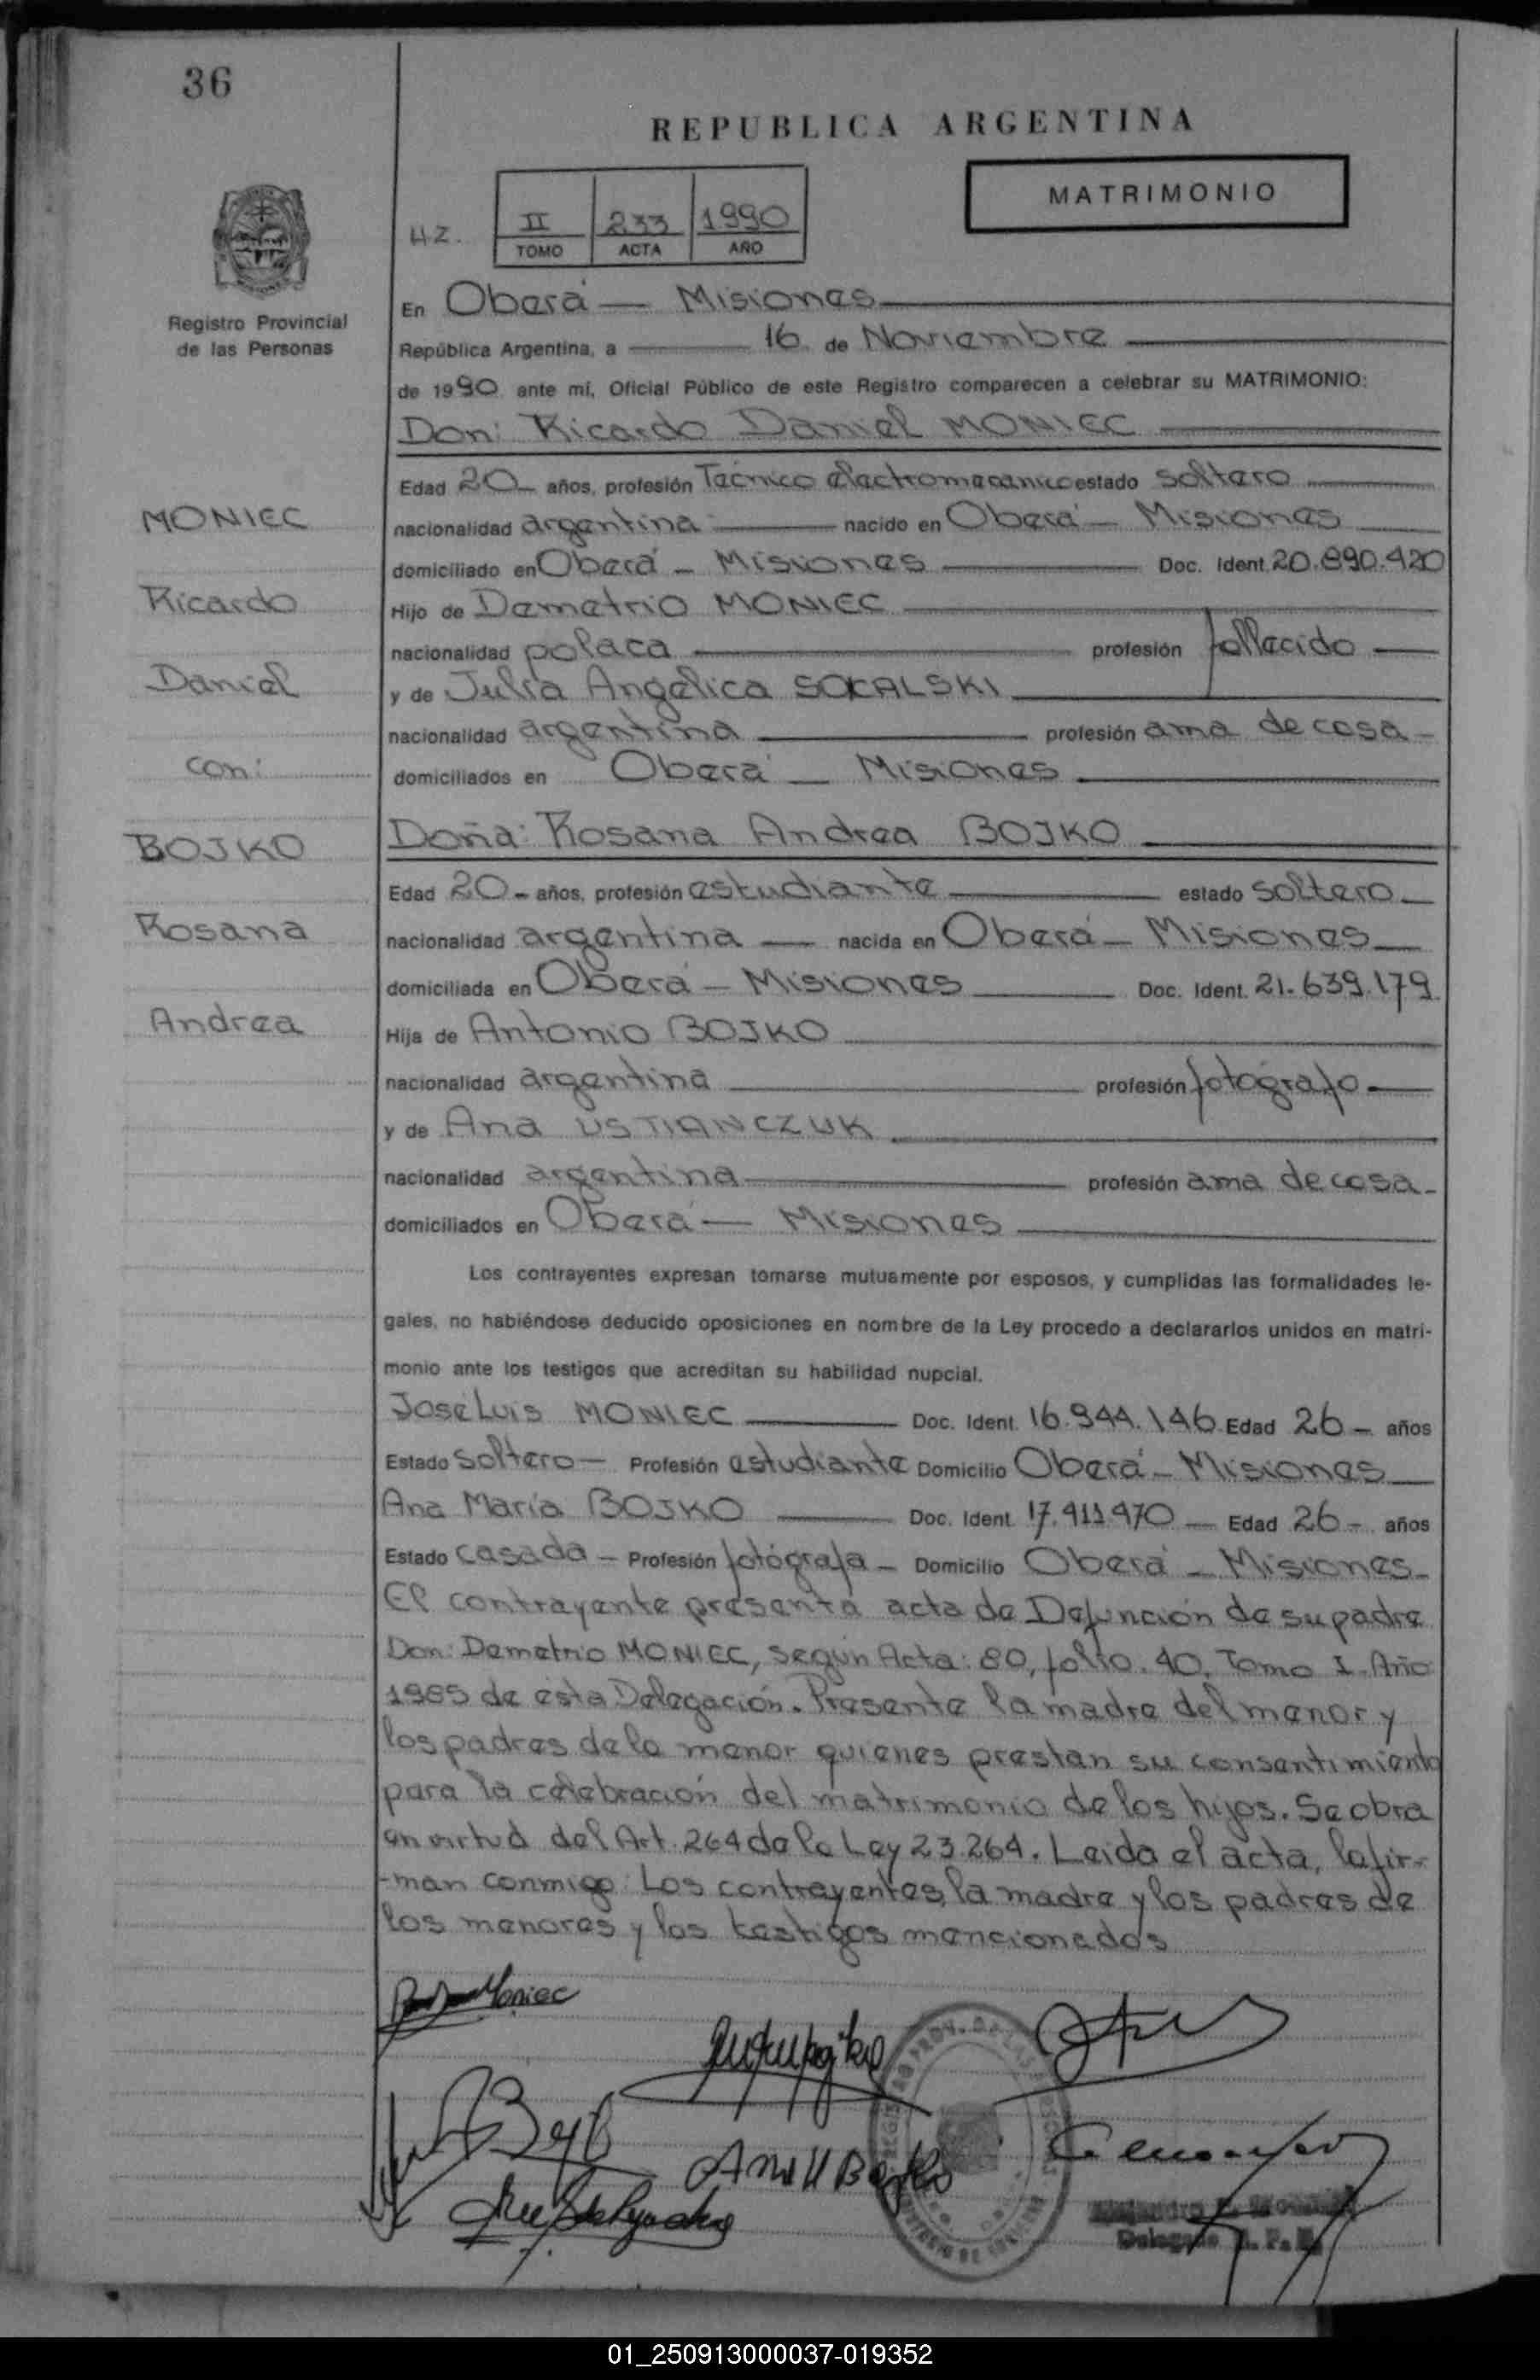 36
REPUBLICA ARGENTINA
MATRIMONIO
H.Z.
II 233 1990
TOMO ACTA AÑO
Registro Provincial
de las Personas
En Oberá — Misiones
República Argentina, a 16 de Noviembre
de 1990 ante mí, Oficial Público de este Registro comparecen a celebrar su MATRIMONIO:
Don: Ricardo Daniel MONIEC
Edad 20 años, profesión Técnico electromecanico estado soltero
nacionalidad argentina nacido en Oberá - Misiones
domiciliado en Oberá - Misiones Doc. Ident. 20.890.420
Hijo de Demetrio MONIEC
nacionalidad polaca profesión fallecido
y de Julia Angélica SOKALSKI
nacionalidad argentina profesión ama de casa
domiciliados en Oberá — Misiones
MONIEC
Ricardo
Daniel
con:
BOJKO
Rosana
Andrea
Doña: Rosana Andrea BOJKO
Edad 20 - años, profesión estudiante estado soltero
nacionalidad argentina — nacida en Oberá - Misiones
domiciliada en Oberá - Misiones Doc. Ident. 21.639.179
Hija de Antonio BOJKO
nacionalidad argentina profesión fotógrafo
y de Ana USTIANCZUK
nacionalidad argentina profesión ama de casa
domiciliados en Oberá — Misiones
Los contrayentes expresan tomarse mutuamente por esposos, y cumplidas las formalidades le-
gales, no habiéndose deducido oposiciones en nombre de la Ley procedo a declararlos unidos en matri-
monio ante los testigos que acreditan su habilidad nupcial.
José Luis MONIEC Doc. Ident. 16.944.146 Edad 26 - años
Estado soltero — Profesión estudiante Domicilio Oberá - Misiones
Ana María BOJKO Doc. Ident. 17.411.470 — Edad 26 - años
Estado casada — Profesión fotógrafa - Domicilio Oberá - Misiones
El contrayente presenta acta de Defunción de su padre
Don: Demetrio MONIEC, según Acta: 80, folio. 40, Tomo I. Año
1985 de ésta Delegación. Presente la madre del menor y
los padres de la menor quienes prestan su consentimiento
para la celebración del matrimonio de los hijos. Se obra
en virtud del Art. 264 de la Ley 23.264. Leida el acta, la fir-
-man conmigo: Los contrayentes, la madre y los padres de
los menores y los testigos mencionados
Moniec
Ana M Bojko
Delegado R. P. P.
01_250913000037-019352